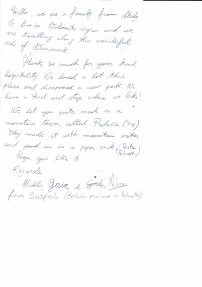 Hello, we are a family from Italy
We live in Dolomiti region and we
are travelling along this wonderful
side of Denmark.
Thanks so much for your kind
hospitality. We loved a lot this
place and discovered a new path. We
have a tend and stop where we like!
We let you pasta made in a
mountain town, called Predazzo (TN)
They made it with mountain water
and good air in a paper sack. (Pasta
Felicetti)
Hope you like it.
Regards
from (Belluno province in Dolomites)